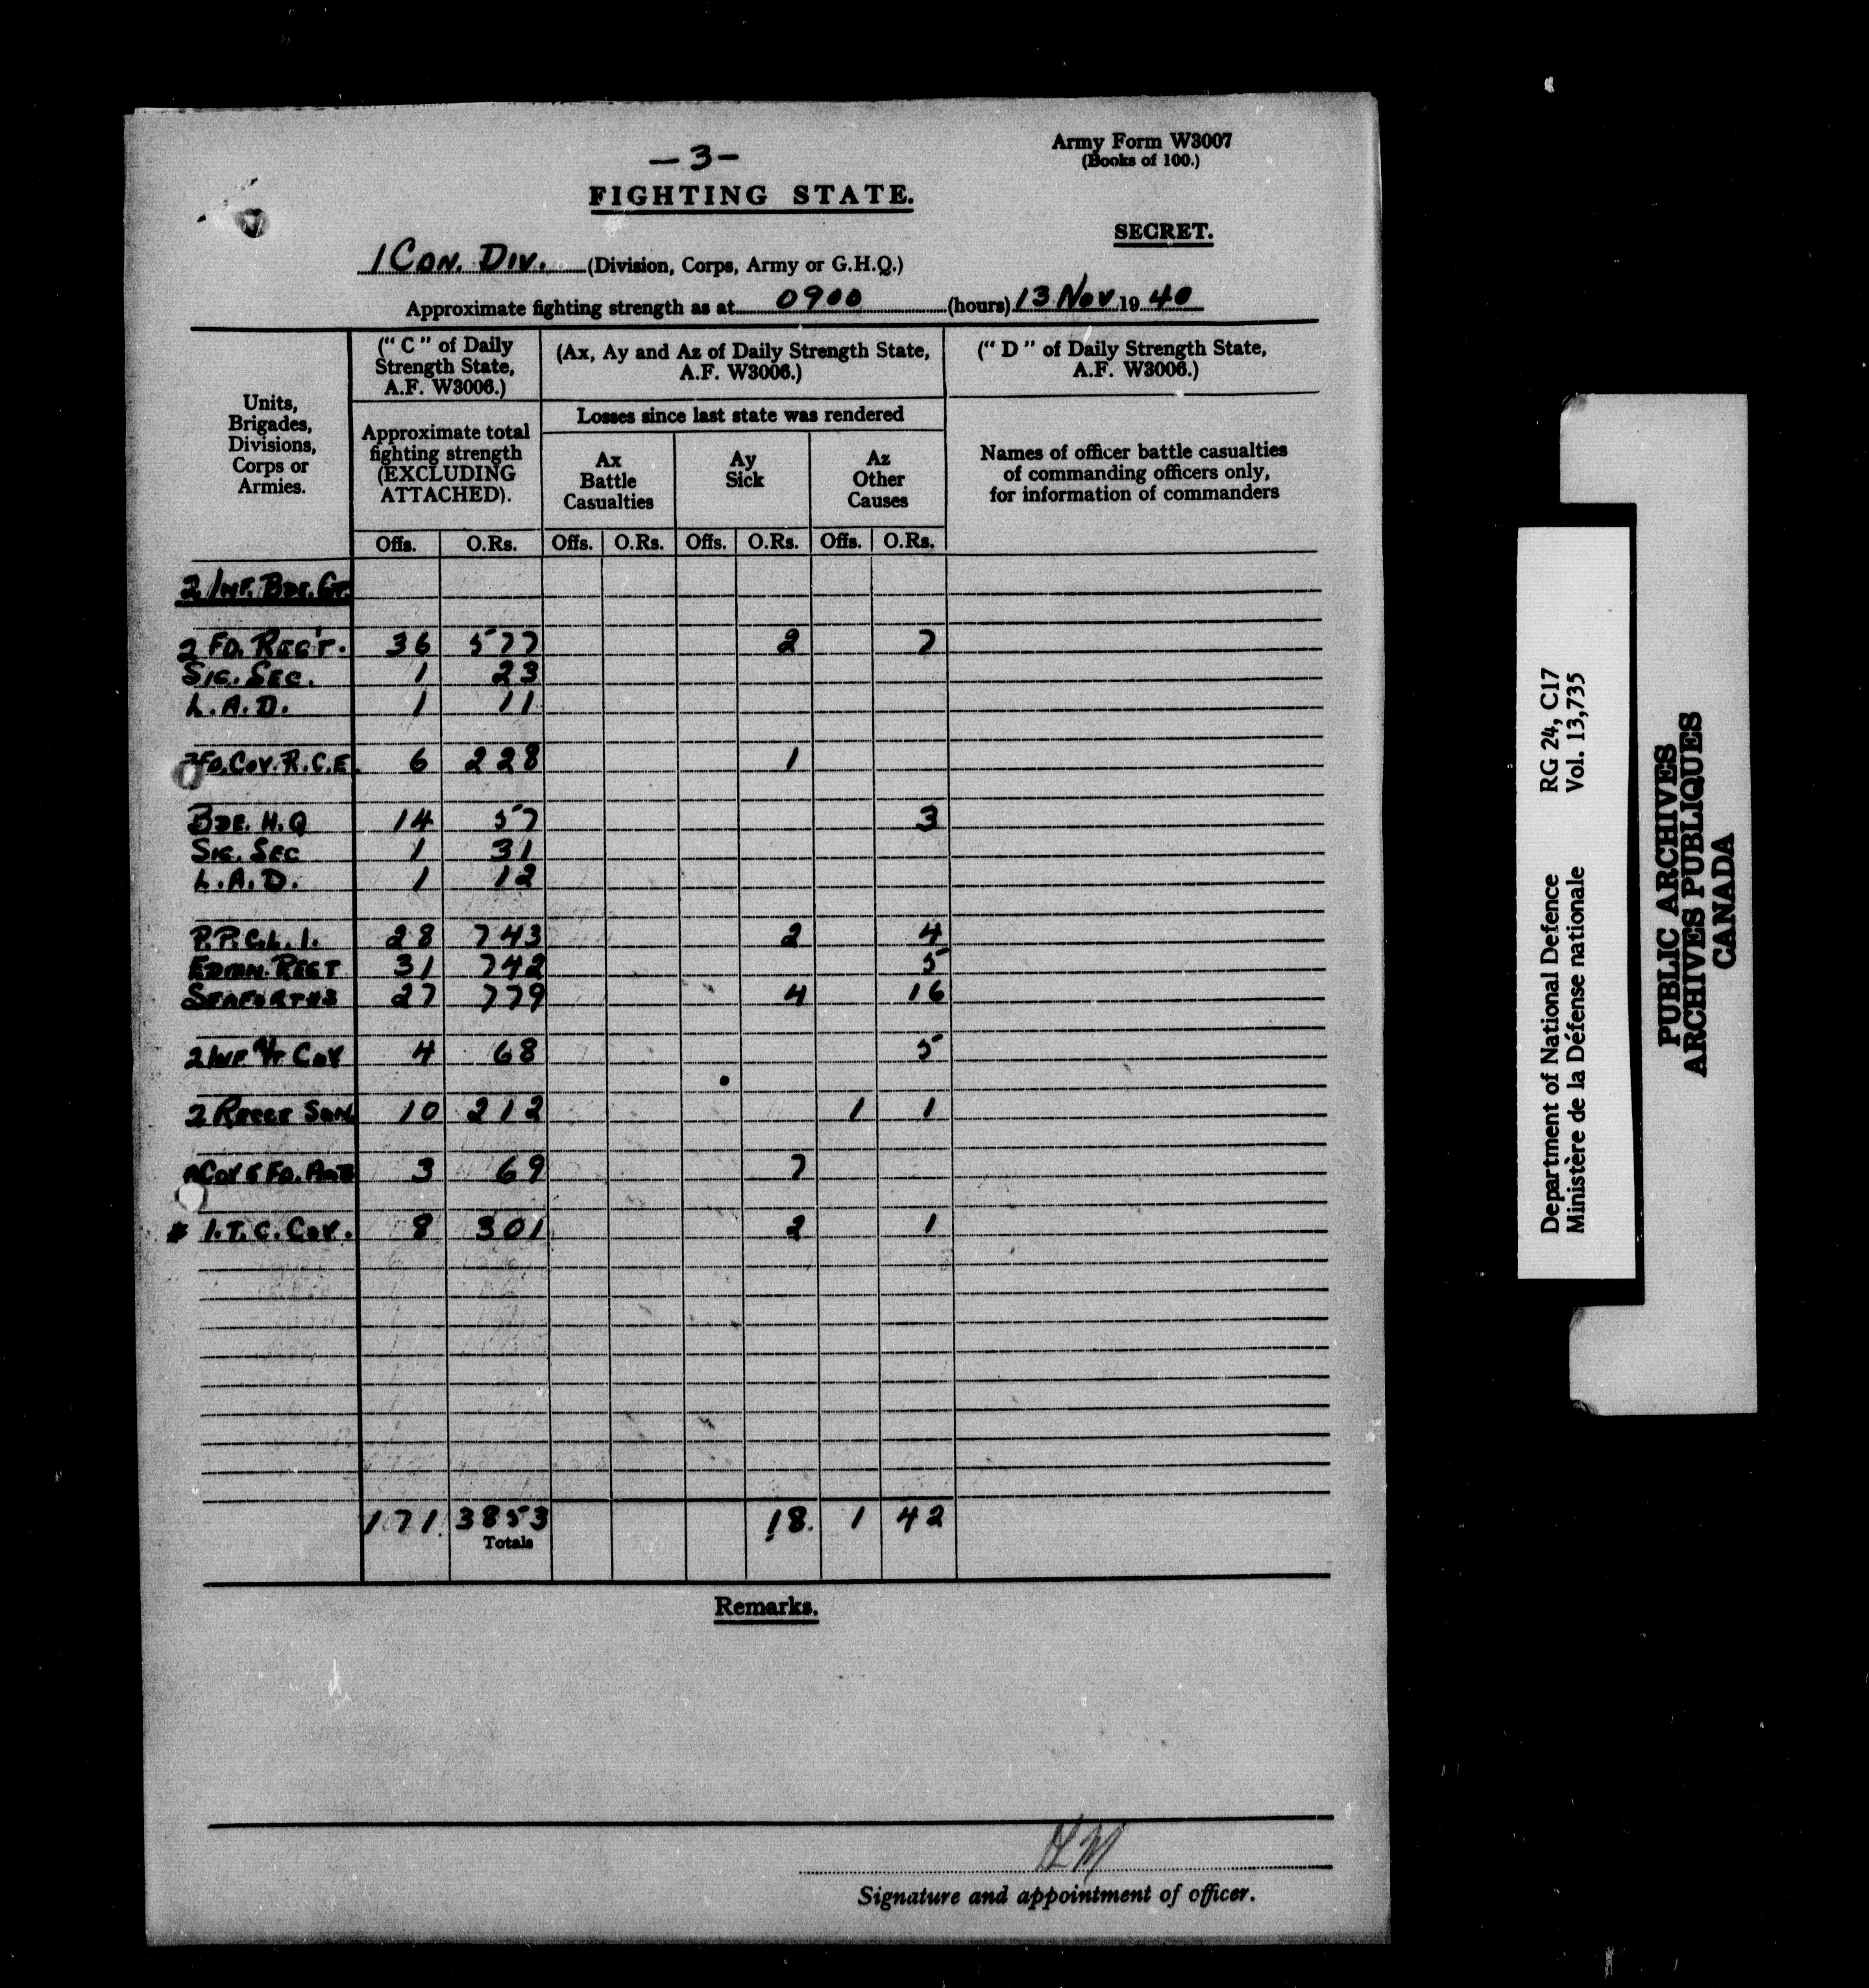 — 3 —
Army Form W3007
(Books of 100.)
FIGHTING STATE.
SECRET.
1 CDN. DIV. (Division, Corps, Army or G.H.Q.)
Approximate fighting strength as at 0900 (hours) 13 Nov 1940
Units, Brigades, Divisions, Corps or Armies.
(" C " of Daily Strength State, A.F. W3006.)
(Ax, Ay and Az of Daily Strength State, A.F. W3006.)
(" D " of Daily Strength State, A.F. W3006.)
Approximate total fighting strength (EXCLUDING ATTACHED).
Losses since last state was rendered
Ax Battle Casualties
Ay Sick
Az Other Causes
Names of officer battle casualties of commanding officers only, for information of commanders
Offs. O.Rs. Offs. O.Rs. Offs. O.Rs. Offs. O.Rs.
2 INF. BDE. GP.
2 FD. REGT. 36 577 2 7
SIG. SEC. 1 23
L.A.D. 1 11
FD. COY. R.C.E. 6 228 1
BDE. H.Q 14 57 3
SIG. SEC 1 31
L.A.D. 1 12
P.P.C.L.I. 28 743 2 4
EDMN. REGT 31 742 5
SEAFORTHS 27 779 4 16
2 INF A/T COY 4 68 5
2 RECCE SQN 10 212 1 1
COY 5 FD. AMB 3 69 7
1.T.C. COY. 8 301 2 1
171. 3853 18. 1 42
Totals
Remarks.
Signature and appointment of officer.
Department of National Defence RG 24, C17
Ministère de la Défense nationale Vol. 13,735
PUBLIC ARCHIVES
ARCHIVES PUBLIQUES
CANADA